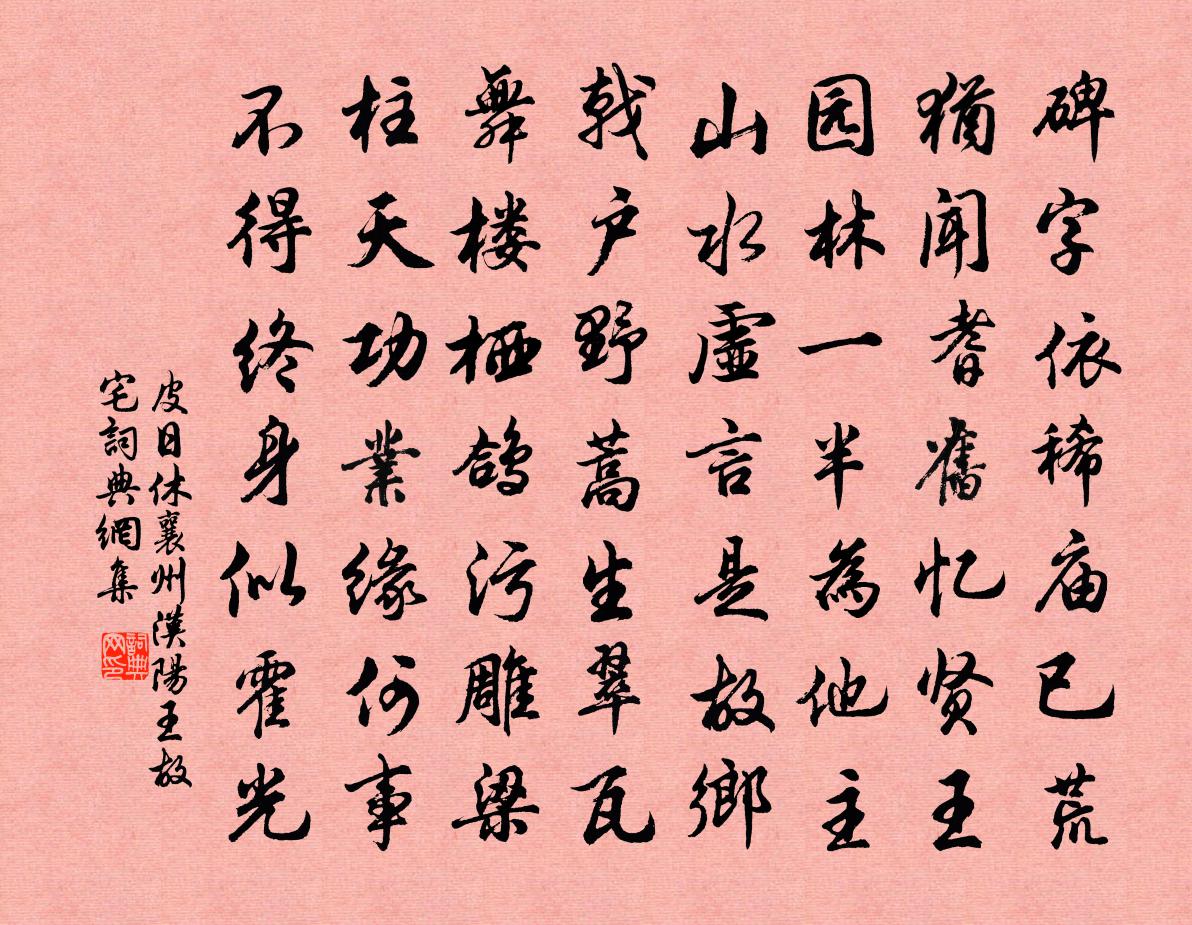 碑字依稀庙已荒
猶闻耆舊忆贤王
园林一半為他主
山水虚言是故鄉
戟户野蒿生翠瓦
舞楼栖鸽污雕梁
柱天功業缘何事
不得终身似霍光
皮日休襄州漢陽王故
宅詞典網集
詞典网印